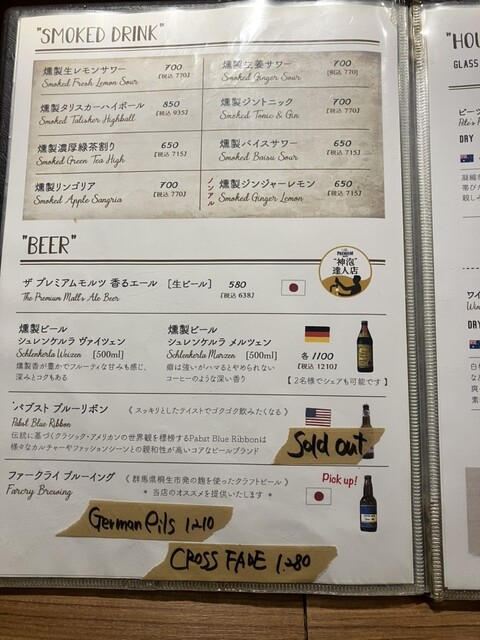 "SMOKED DRINK"
燻製生レモンサワー 700
Smoked Fresh Lemon Sour [税込 770]
燻製生姜サワー 700
Smoked Ginger Sour [税込 770]
燻製タリスカーハイボール 850
Smoked Talisker Highball [税込 935]
燻製ジントニック 700
Smoked Tonic & Gin [税込 770]
燻製濃厚緑茶割り 650
Smoked Green Tea High [税込 715]
燻製バイスサワー 650
Smoked Baisu Sour [税込 715]
燻製リンゴリア 700
Smoked Apple Sangria [税込 770]
ノンアル 燻製ジンジャーレモン 650
Smoked Ginger Lemon [税込 715]
"BEER"
"神泡"
達人店
ザ プレミアムモルツ 香るエール [生ビール] 580
The Premium Malt's Ale Beer [税込 638]
燻製ビール
シュレンケルラ ヴァイツェン
Schlenkerla Weizen [500ml]
燻製香が豊かでフルーティな甘みも感じ、
深みとコクもある
燻製ビール
シュレンケルラ メルツェン
Schlenkerla Marzen [500ml]
癖は強いがハマるとやめられない
コーヒーのような深い香り
各 1100
[税込 1210]
【 2名様でシェアも可能です 】
パブスト ブルーリボン 《 スッキリとしたテイストでゴクゴク飲みたくなる 》
Pabst Blue Ribbon
伝統に基づくクラシック・アメリカンの世界観を標榜するPabst Blue Ribbonは
様々なカルチャーやファッションシーンとの親和性が高いコアなビールブランド
Sold out
ファークライ ブルーイング 《 群馬県桐生市発の麹を使ったクラフトビール 》
Farcry Brewing * 当店のオススメを提供いたします *
Pick up!
German Pils 1.210
CROSS FADE 1.280
"HOU
GLASS
DRY
DRY